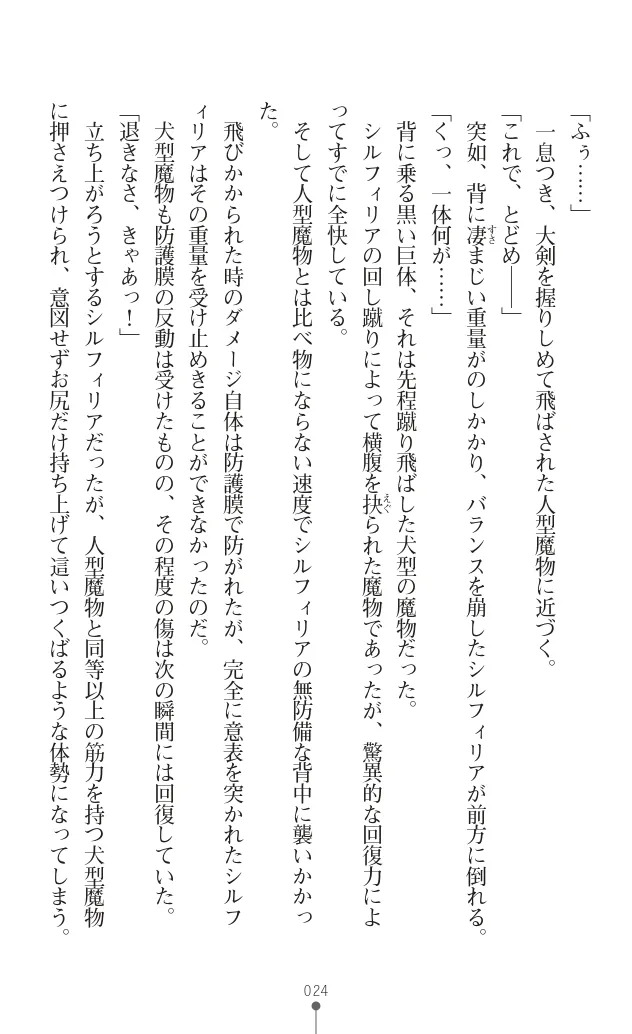 「ふぅ……」
一息つき、大剣を握りしめて飛ばされた人型魔物に近づく。
「これで、とどめ――」
突如、背に凄まじい重量がのしかかり、バランスを崩したシルフィリアが前方に倒れる。
すさ
「くっ、一体何が……」
背に乗る黒い巨体、それは先程蹴り飛ばした犬型の魔物だった。
シルフィリアの回し蹴りによって横腹を抉られた魔物であったが、驚異的な回復力によ
えぐ
ってすでに全快している。
そして人型魔物とは比べ物にならない速度でシルフィリアの無防備な背中に襲いかかっ
た。
飛びかかられた時のダメージ自体は防護膜で防がれたが、完全に意表を突かれたシルフ
ィリアはその重量を受け止めきることができなかったのだ。
犬型魔物も防護膜の反動は受けたものの、その程度の傷は次の瞬間には回復していた。
「退きなさ、きゃあっ！」
立ち上がろうとするシルフィリアだったが、人型魔物と同等以上の筋力を持つ犬型魔物
に押さえつけられ、意図せずお尻だけ持ち上げて這いつくばるような体勢になってしまう。
024